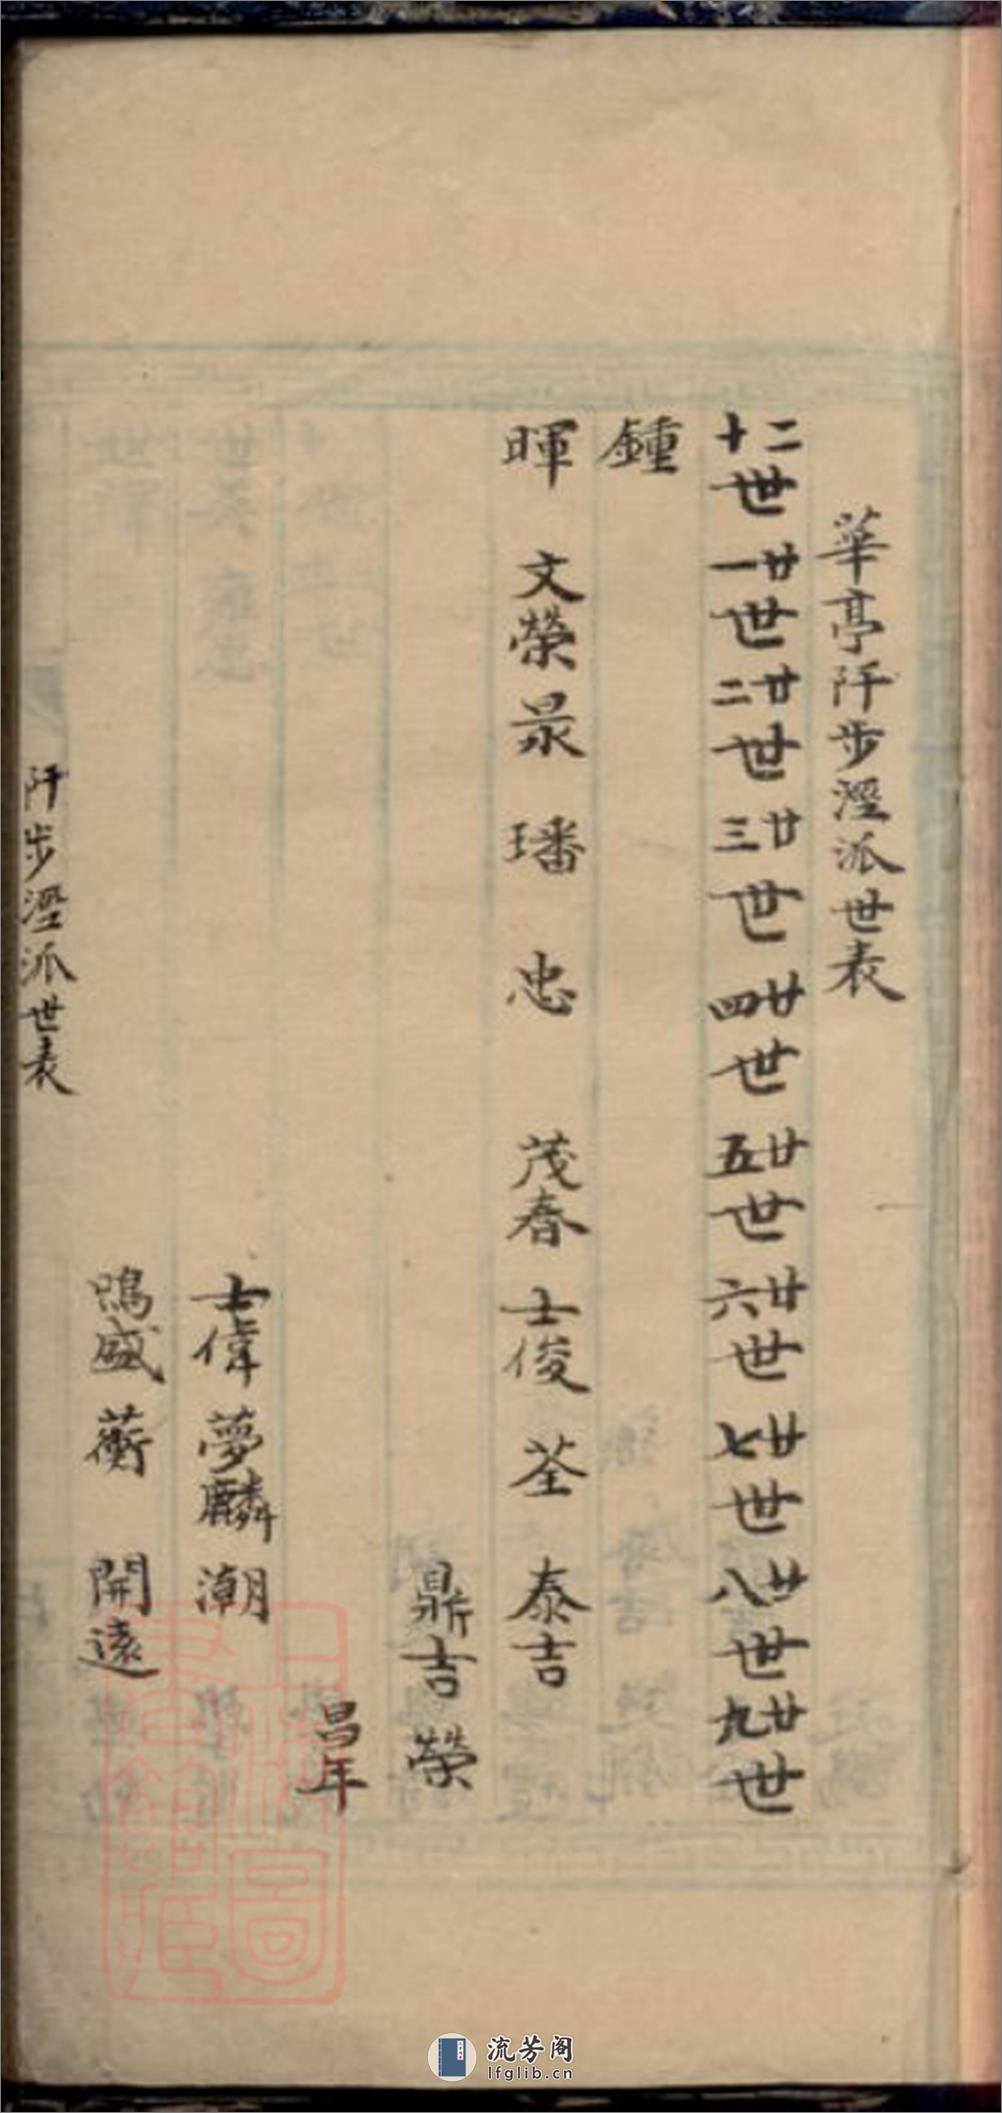 華亭阡步涇派世表
二十世 廿一世 廿二世 廿三世 廿四世 廿五世 廿六世 廿七世 廿八世 廿九世
鍾
暉 文榮 杲 璠 忠 茂春 士俊 荃 泰吉
鼎吉 榮
昌年
士偉 夢麟 潮
鳴盛 蘅 開遠
阡步涇派世表
上海圖書館藏
流芳阁
lfglib.cn